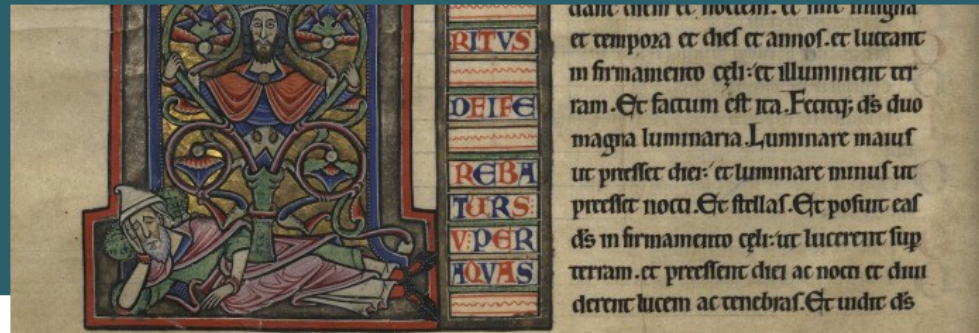 RITVS
DEIFE
REBA
TURS:
V:PER
AQVAS
et tempora et dies et annos. et luceant
in firmamento cęli: et illuminent ter
ram. Et factum est ita. Fecitq; ds duo
magna luminaria. Luminare maius
ut preesset diei: et luminare minus ut
preesset nocti. Et stellas. Et posuit eas
ds in firmamento cęli: ut lucerent sup
terram. et preessent diei ac nocti et diui
derent lucem ac tenebras. Et uidit ds